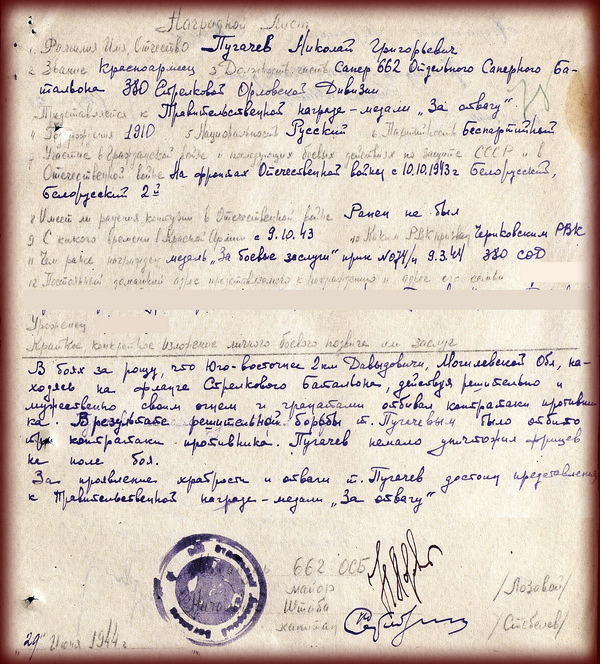 Наградной Лист
1. Фамилия Имя, Отчество Пугачев Николай Григорьевич
2 Звание Красноармеец 3 Должность, часть Сапер 662 Отдельного Саперного Ба-
тальона 380 Стрелковой Орловской Дивизии
Представляется к Правительственной награде - медали „За отвагу"
4 Год рождения 1910 5 Национальность Русский 6 Партийность Беспартийный
7 Участие в Гражданской войне и последующих боевых действиях по защите СССР и в
Отечественной войне На фронтах Отечественной войны с 10.10.1943 г Белорусский,
Белорусский 2й
8 Имеет ли ранения контузии в Отечественной войне Ранен не был
9 С какого времени в Красной Армии с 9.10.43 10 Каким РВК призван Чериковским РВК
11 Чем ранее награжден медаль „За боевые заслуги" прик №074/н 9.3.44 380 СОД
12 Постоянный домашний адрес представляемого к награждению и адрес его семьи
Уроженец
Краткое конкретное изложение личного боевого подвига или заслуг
В боях за рощу, что Юго-восточнее 2 км Давыдовичи, Могилевской Обл, на-
ходясь на фланге Стрелкового Батальона, действуя решительно и
мужественно своим огнем и гранатами отбивал контратаки противни-
ка. В результате решительной борьбы т. Пугачевым было отбито
три контратаки противника. Пугачев немало уничтожил фрицев
на поле боя.
За проявление храбрости и отваги т. Пугачев достоин представления
к Правительственной награде - медали „За отвагу"
662 ОСБ
майор /Лозовой/
Штаба
капитан
"29" Июня 1944 г.